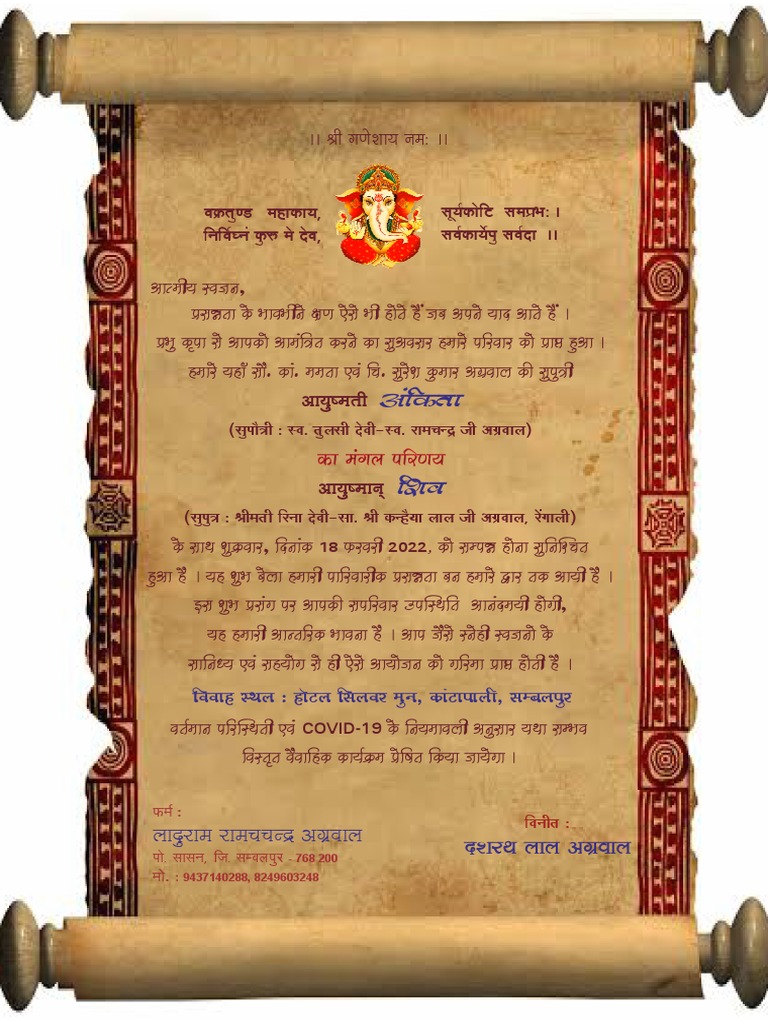 ।। श्री गणेशाय नम: ।।
वक्रतुण्ड महाकाय, सूर्यकोटि समप्रभ: ।
निर्विघ्नं कुरु मे देव, सर्वकार्येपु सर्वदा ।।
आत्मीय स्वजन,
प्रसन्नता के भावभीने क्षण ऐसे भी होते हैं जब अपने याद आते हैं ।
प्रभु कृपा से आपको आमंत्रित करने का सुअवसर हमारे परिवार को प्राप्त हुआ ।
हमारे यहाँ सौ. कां. ममता एवं चि. सुरेश कुमार अग्रवाल की सुपुत्री
आयुष्मती अंकिता
(सुपौत्री : स्व. तुलसी देवी-स्व. रामचन्द्र जी अग्रवाल)
का मंगल परिणय
आयुष्मान् शिव
(सुपुत्र : श्रीमती रिना देवी-सा. श्री कन्हैया लाल जी अग्रवाल, रेंगाली)
के साथ शुक्रवार, दिनांक 18 फरवरी 2022, को सम्पन्न होना सुनिश्चित
हुआ है । यह शुभ बेला हमारी पारिवारीक प्रसन्नता बन हमारे द्वार तक आयी है ।
इस शुभ प्रसंग पर आपकी सपरिवार उपस्थिति आनंदमयी होगी,
यह हमारी आन्तरिक भावना है । आप जैसे स्नेही स्वजनो के
सानिध्य एवं सहयोग से ही ऐसे आयोजन को गरिमा प्राप्त होती है ।
विवाह स्थल : होटल सिलवर मुन, कांटापाली, सम्बलपुर
वर्तमान परिस्थिती एवं COVID-19 के नियमावली अनुसार यथा सम्भव
विस्तृत वैवाहिक कार्यक्रम प्रेषित किया जायेगा ।
फर्म :
लादुराम रामचचन्द्र अग्रवाल
पो. सासन, जि सम्बलपुर - 768 200
मो. : 9437140288, 8249603248
विनीत :
दशरथ लाल अग्रवाल